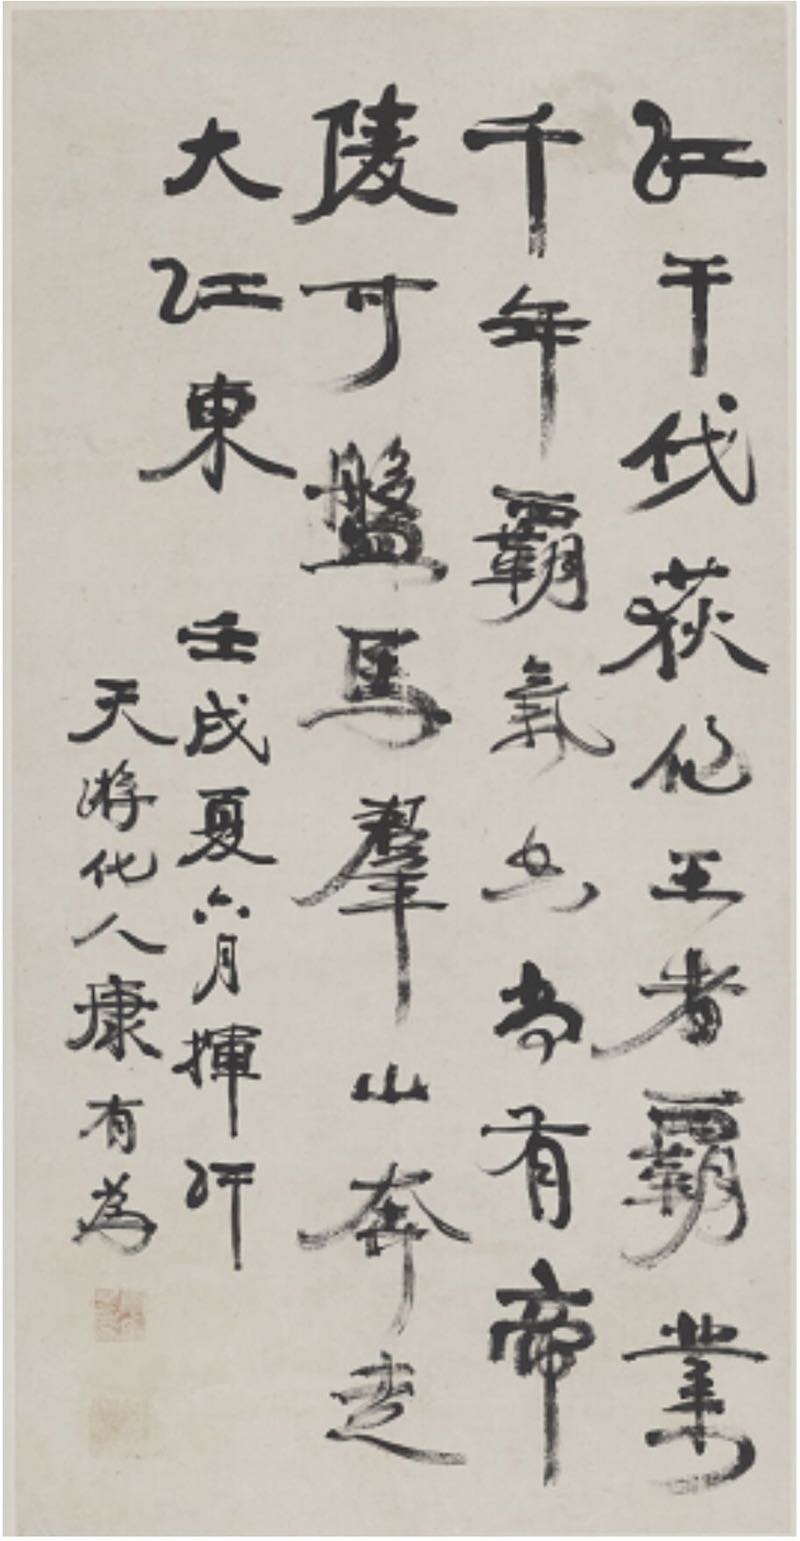 江干伐荻王者覇業
千年覇氣尚有帝
陵可盤馬羣山奔走
大江東
壬戌夏六月揮汗
天游化人康有為